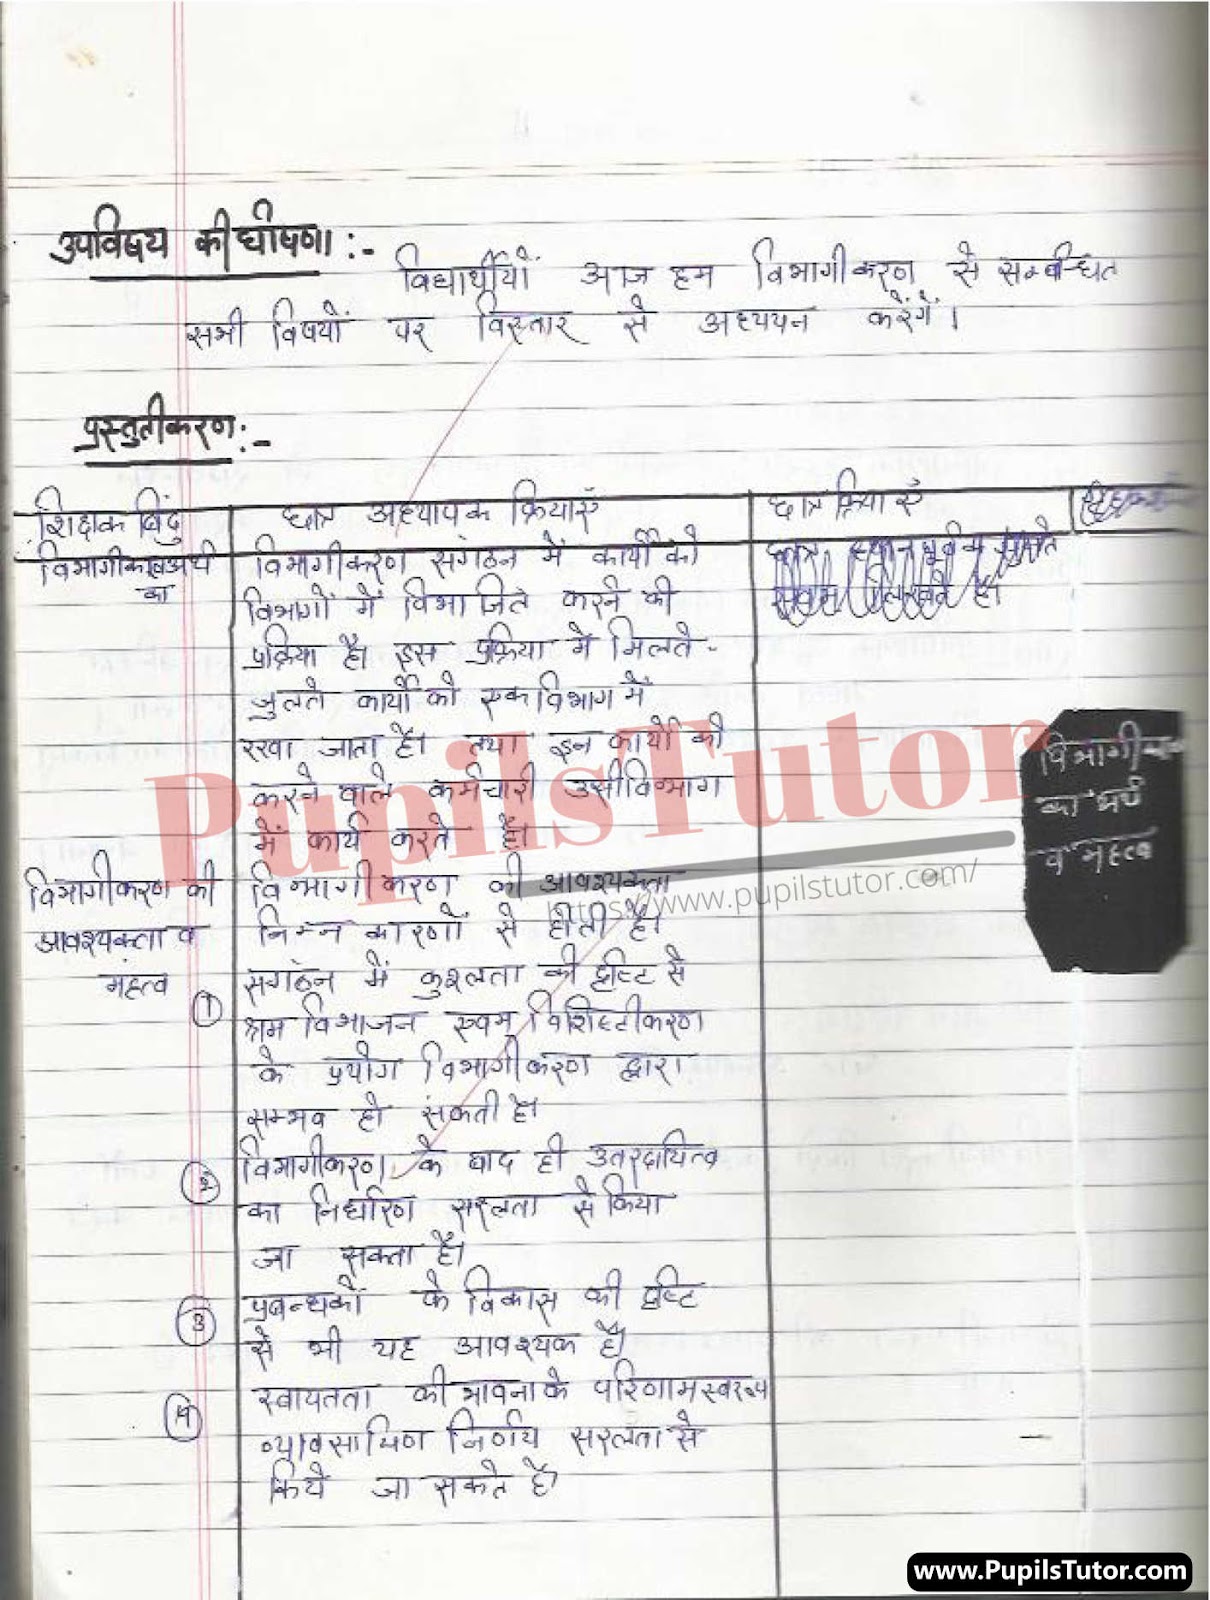 उपविषय की घोषणा :-
विद्यार्थीयों आज हम विभागीकरण से सम्बन्धित
सभी विषयों पर विस्तार से अध्ययन करेंगें।
प्रस्तुतीकरण:-
शिक्षक बिंदु छात्र अध्यापक क्रियाएँ छात्र क्रियाएँ
विभागीकरण अर्थ
का
विभागीकरण संगठन में कार्यों को
विभागों में विभाजित करने की
प्रक्रिया है। इस प्रक्रिया में मिलते-
जुलते कार्यों को एक विभाग में
रखा जाता है। तथा इन कार्यों को
करने वाले कर्मचारी उसी विभाग
में कार्य करते है।
विभागीकरण की
आवश्यकता व
महत्व
विभागीकरण की आवश्यकता
निम्न कारणों से होती है।
① संगठन में कुशलता की दृष्टि से
श्रम विभाजन एवम् विशिष्टीकरण
के प्रयोग विभागीकरण द्वारा
सम्भव हो सकती है।
② विभागीकरण के बाद ही उतरदायित्व
का निर्धारण सरलता से किया
जा सकता है।
③ प्रबन्धकों के विकास की दृष्टि
से भी यह आवश्यक है।
④ स्वायतता की भावना के परिणामस्वरूप
व्यावसायिण निर्णय सरलता से
किये जा सकते है।
विभागीकरण
का अर्थ
व महत्व
PupilsTutor
https://www.pupilstutor.com/
www.PupilsTutor.com